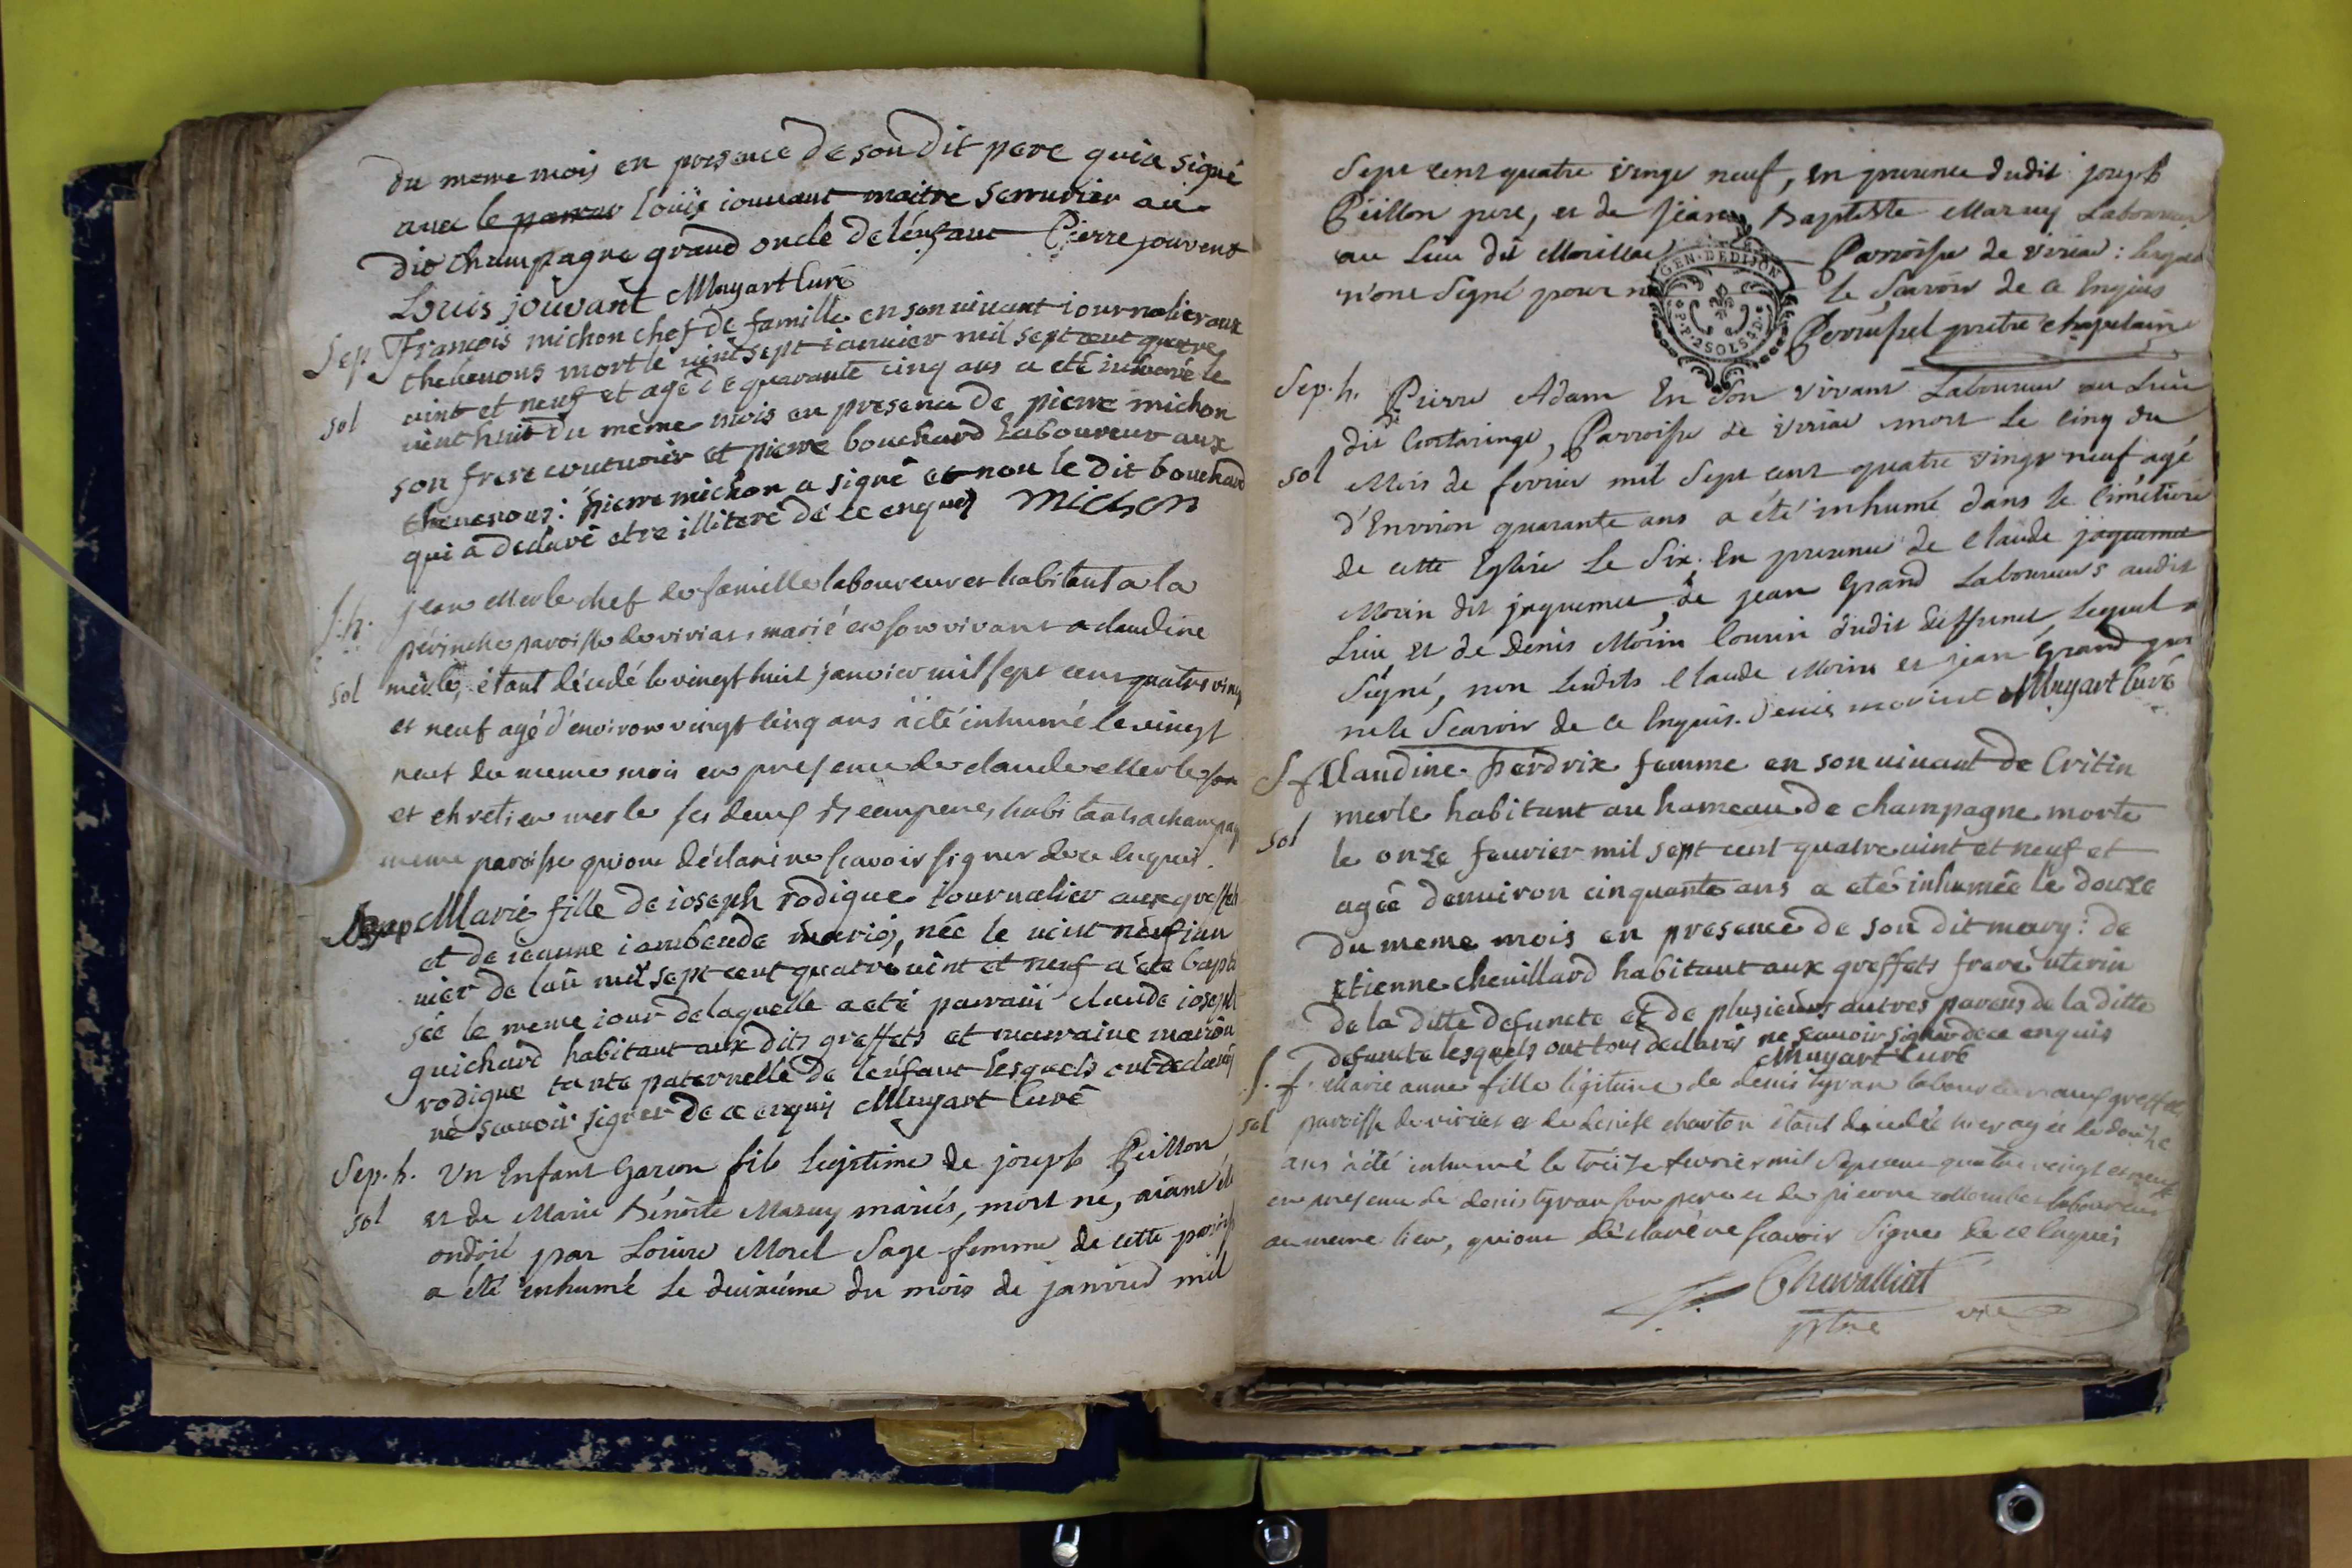 du meme mois en presence de son dit pere qui a signé
avec le louïs iouuant maitre serrurier au
dit champagne grand oncle de l'énfant Pierre jouvent
Louis jouvant Muyart Curé
Sep François michon chef de famille en son uiuant iournalier aux
theuenons mort le uint sept ianuier mil sept cent quatre
sol uint et neuf et agé de quarante cinq ans a eté inhumé le
uint huit du même mois en presence de pierre michon
son frere couturier et pierre bouchard laboureur aux
theuenons: pierre michon a signé et non le dit bouchard
qui a déclaré etre illiteré de ce enquis michon
S.h. jean Merle chef de famille laboureur et habitant a la
perinche paroisse de viriat, marié en son vivant a claudine
sol merle, étant décedé le vingt huit janvier mil sept cens quatre vingt
et neuf agé d'environ vingt cinq ans à été inhumé le vingt
neuf du meme mois en presence de claude Merle son
et chretien merle ses deux beaupere, habitants a champag
meme paroisse qui ont déclaré ne scavoir signer de ce enquis.
Bap Marie fille de ioseph rodigue iournalier aux greffets
et de ieanne mariés, née le uint neuf ian
uier de l'an mil sept cent quatre uint et neuf a été bapti
sée le meme iour de laquelle a eté parrain claude ioseph
guichard habitant aux dits greffets et marraine marion
rodigue tante paternelle de l'énfant lesquels ont declarés
né scauoir signer de ce enquis Muyart Curé
Sep. h. Un Enfant Garcon fils legitime de joseph Puillon
sol et de Marie Bénoite Maruy mariés, mort né, aiant été
ondoié par Louise Morel Sage-femme de cette paroisse
a été inhumé le deuxiéme du mois de janvier mil
Sept cent quatre vingt neuf, en presence dudit joseph
Puillon pere, et de Jean Baptiste Maruy Laboureur
au Lieu dit Marillat Parroisse de viriat: lesquels
n'ont Signé pour ne le Scavoir de ce Enquis
GEN. DE DIJON
2 SOLS
Perruquet prêtre chapelain
Sep. h. Pierre Adam En Son vivant Laboureur au Lieu
dit de Curtaringe, Parroisse de viriat mort le cinq du
sol Mois de fevrier mil Sept cent quatre vingt neuf agé
d'Environ quarante ans a été inhumé dans le Cimétiere
de cette Eglise le Six; En presence de Claude jaquemet
Morin dit jaquemet, de jean Grand Laboureurs audit
Lieu et de Denis Morin Cousin dudit deffunct, lequel a
Signé, non lesdits Claude Morin et jean Grand pour
ne le Scavoir de ce Enquis. Denis morin Muyart Curé
S f Claudine Perdrix femme en son uiuant de Critin
merle habitant au hameau de champagne morte
sol le onze feurier mil sept cent quatre uint et neuf et
agée denuiron cinquante ans a eté inhumée le douze
du meme mois en presence de son dit mary: de
etienne cheuillard habitant aux greffets frere uterin
de la ditte defuncte et de plusieurs autres parens de la ditte
defuncte lesquels ont tous declarés ne scauoir signer de ce enquis
Muyart Curé
S. f. Marie anne fille légitime de denis tyvan laboureur aux greffets
sol paroisse de viriat et de denise charton étant décedée hier agée de douze
ans à été inhumé le treize fevrier mil Sept cens quatre vingt et neuf
en presence de denis tyvan son pere et de pierre laboureur
au meme lieu, qui ont déclaré ne scavoir Signer de ce Enquis
Chevalliat
ptre vic